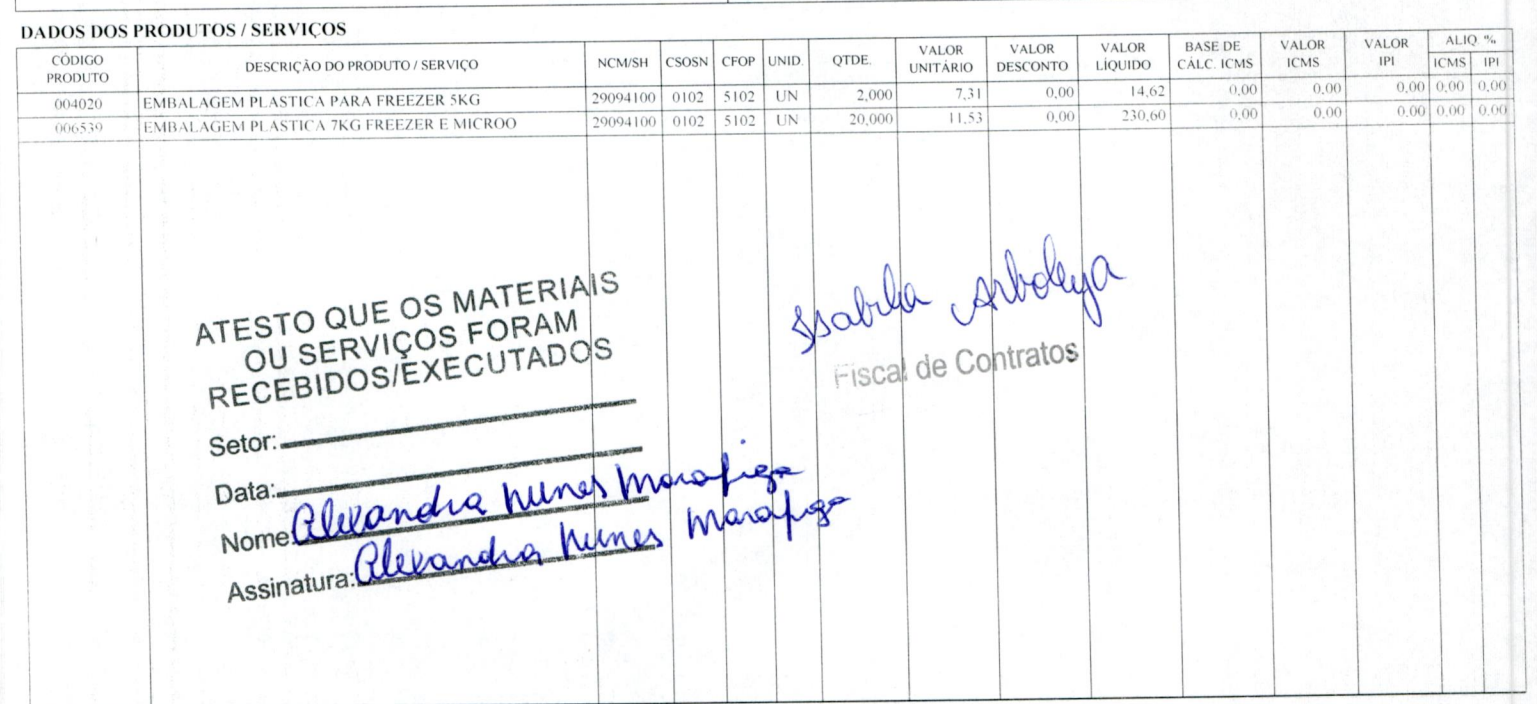 DADOS DOS PRODUTOS / SERVIÇOS
CÓDIGO PRODUTO DESCRIÇÃO DO PRODUTO / SERVIÇO NCM/SH CSOSN CFOP UNID. QTDE. VALOR UNITÁRIO VALOR DESCONTO VALOR LÍQUIDO BASE DE CÁLC. ICMS VALOR ICMS VALOR IPI ALIQ. % ICMS IPI
004020 EMBALAGEM PLASTICA PARA FREEZER 5KG 29094100 0102 5102 UN 2,000 7,31 0,00 14,62 0,00 0,00 0,00 0,00 0,00
006539 EMBALAGEM PLASTICA 7KG FREEZER E MICROO 29094100 0102 5102 UN 20,000 11,53 0,00 230,60 0,00 0,00 0,00 0,00 0,00
ATESTO QUE OS MATERIAIS
OU SERVIÇOS FORAM
RECEBIDOS/EXECUTADOS
Setor:
Data:
Nome: Alexandra Nunes Marafiga
Assinatura: Alexandra Nunes Marafiga
Isabela Arboleya
Fiscal de Contratos